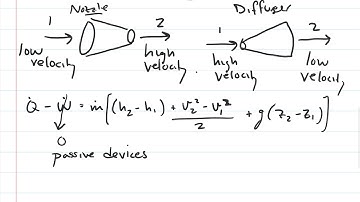 Nozzle
Diffuser
1 2
low velocity
high velocity
1 2
high velocity
low velocity
Q̇ - Ẇ = ṁ[(h₂-h₁) + (V₂² - V₁²)/2 + g(z₂-z₁)]
0
passive devices